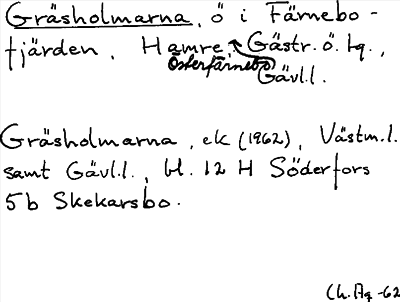 Gräsholmarna, ö i Färnebo-
fjärden, Hamre, Gästr. ö. tg.,
Österfärnebo
Gävl.l.
Gräsholmarna, ek (1962), Västm.l.
samt Gävl.l., bl. 12 H Söderfors
5b Skekarsbo.
Ch. Ag -62